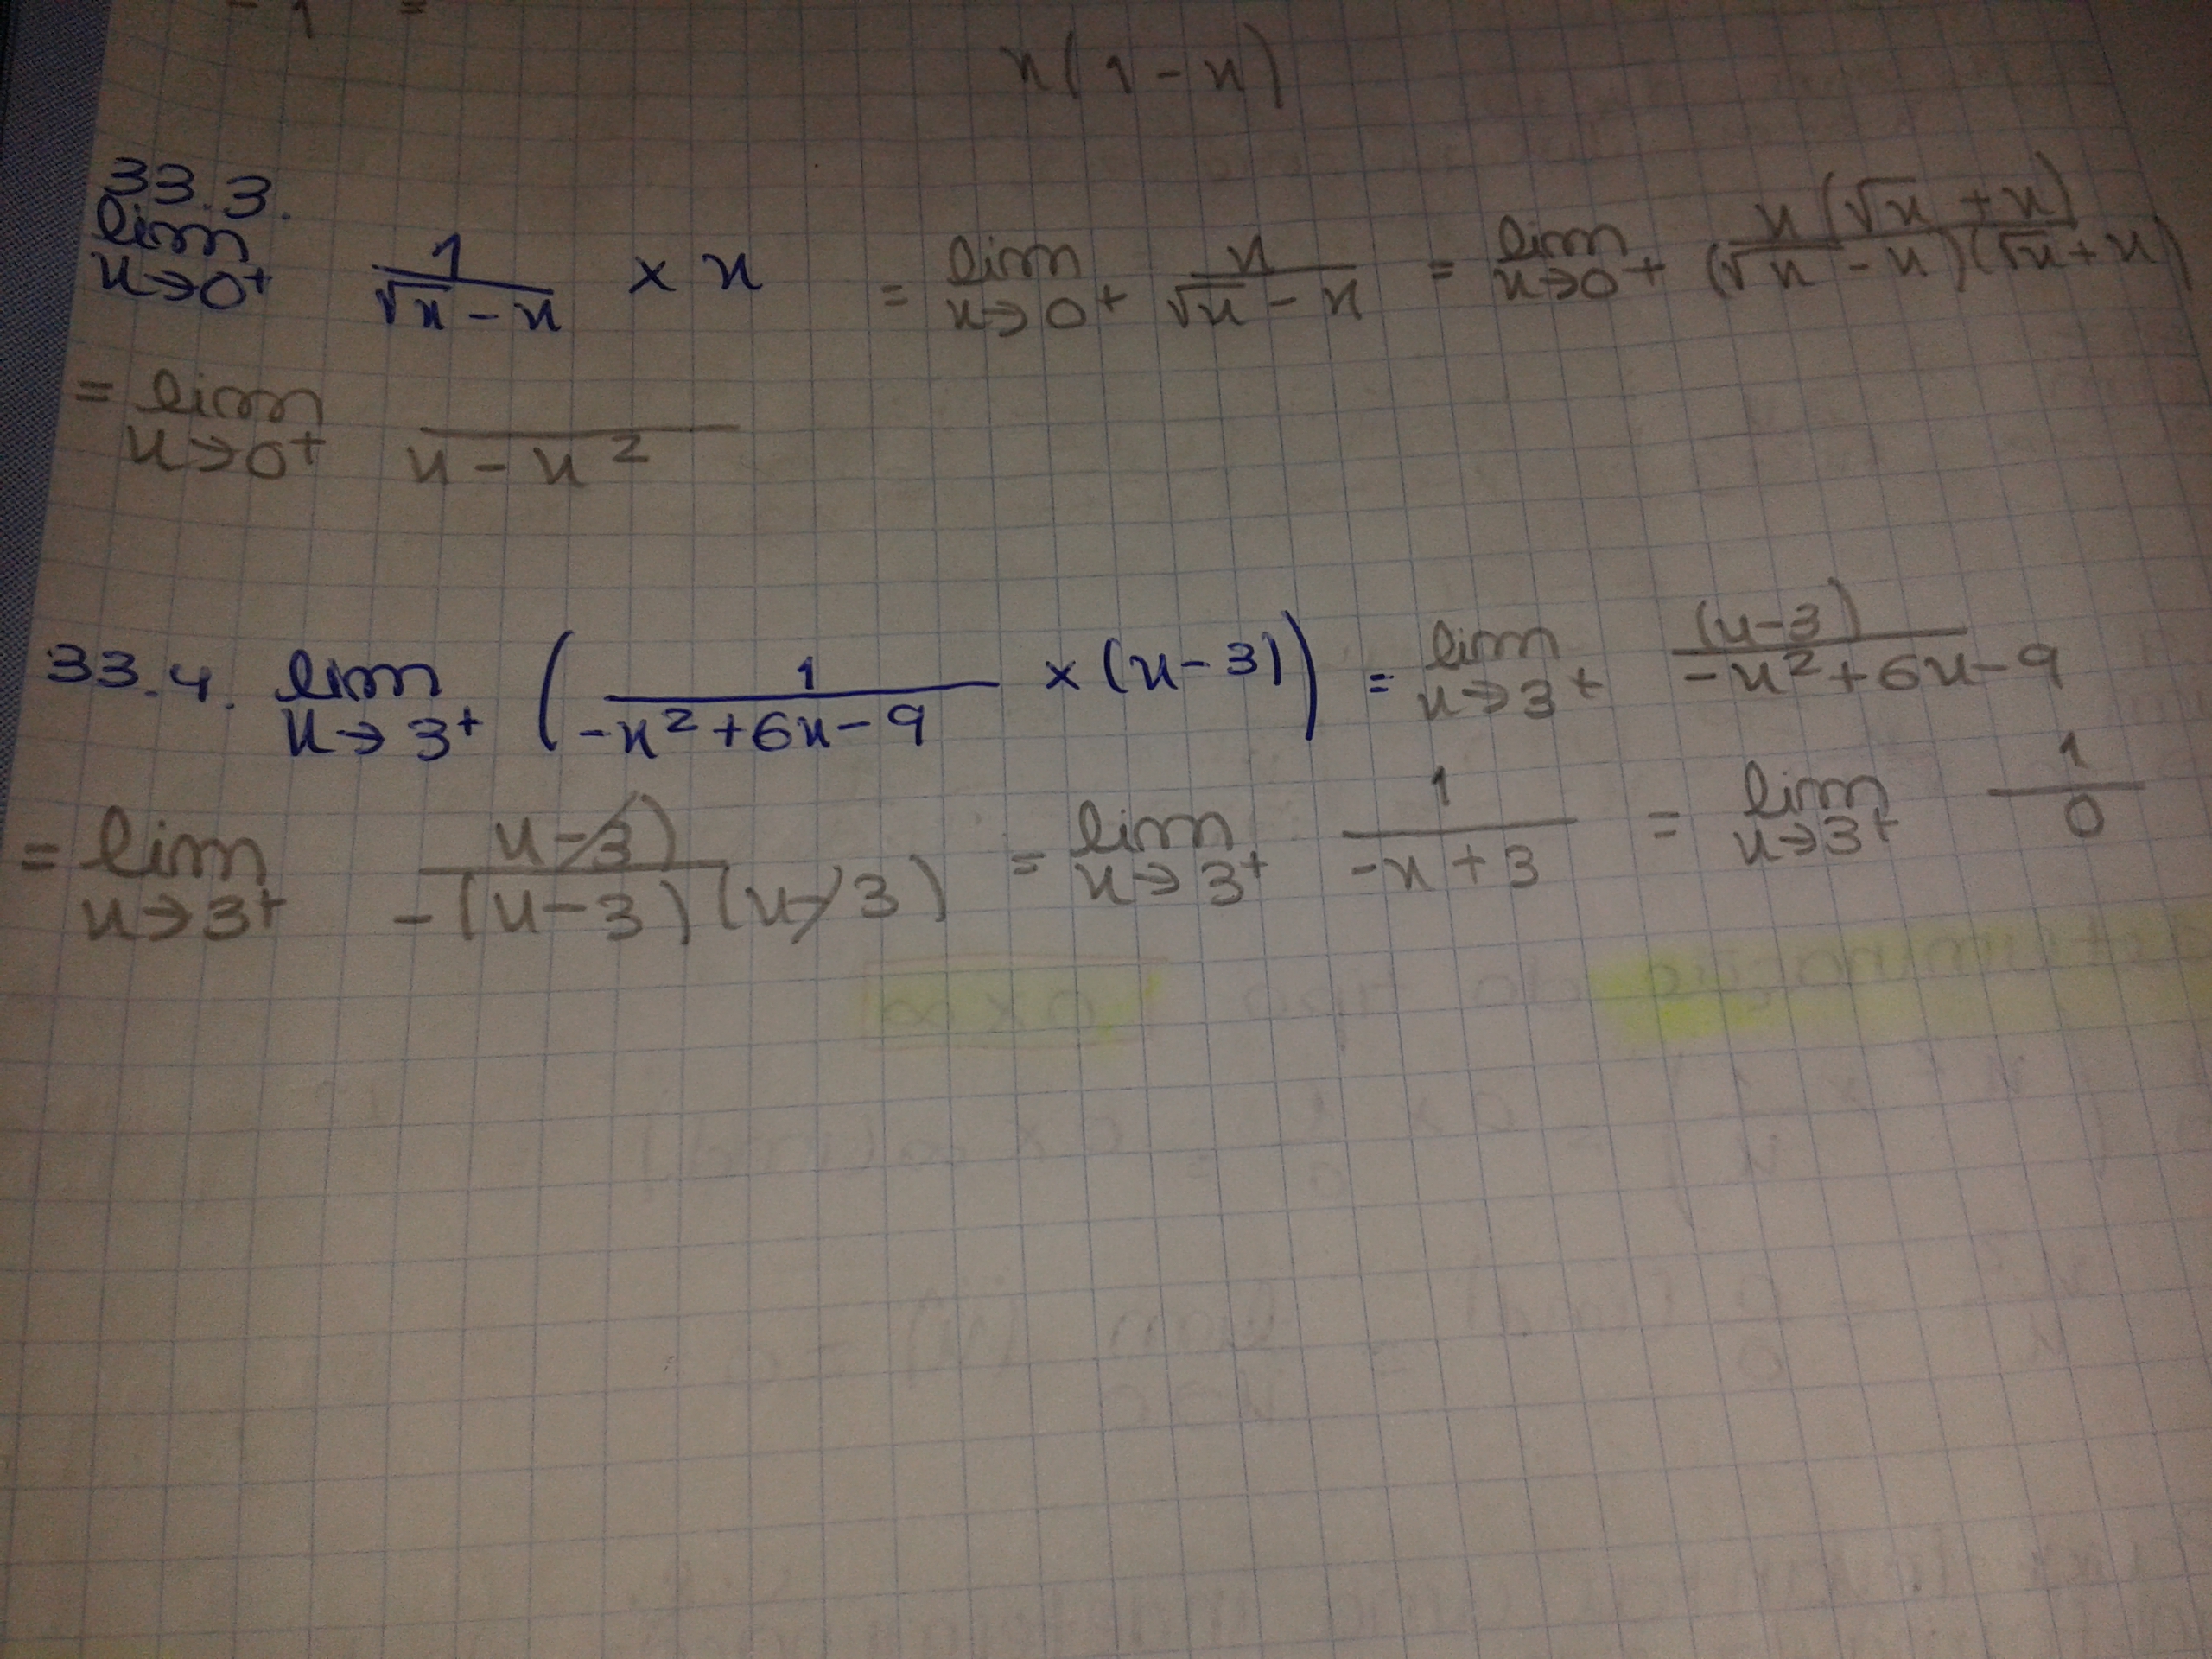 - 1 =
x(1-x)
33.3.
lim x→0+ 1/(√x - x) × x = lim x→0+ x/(√x - x) = lim x→0+ x(√x + x)/((√x - x)(√x + x))
= lim x→0+ /(x - x²)
33.4. lim x→3+ (1/(-x²+6x-9) × (x-3)) = lim x→3+ (x-3)/(-x²+6x-9)
= lim x→3+ x-3)/(-(x-3)(x-3)) = lim x→3+ 1/(-x+3) = lim x→3+ 1/0